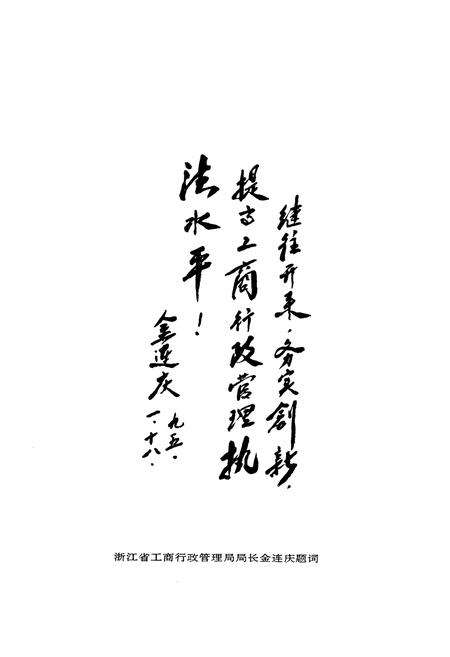 继往开来，务实创新，
提高工商行政管理执
法水平！
金连庆
九五.
一.十八.
浙江省工商行政管理局局长金连庆题词